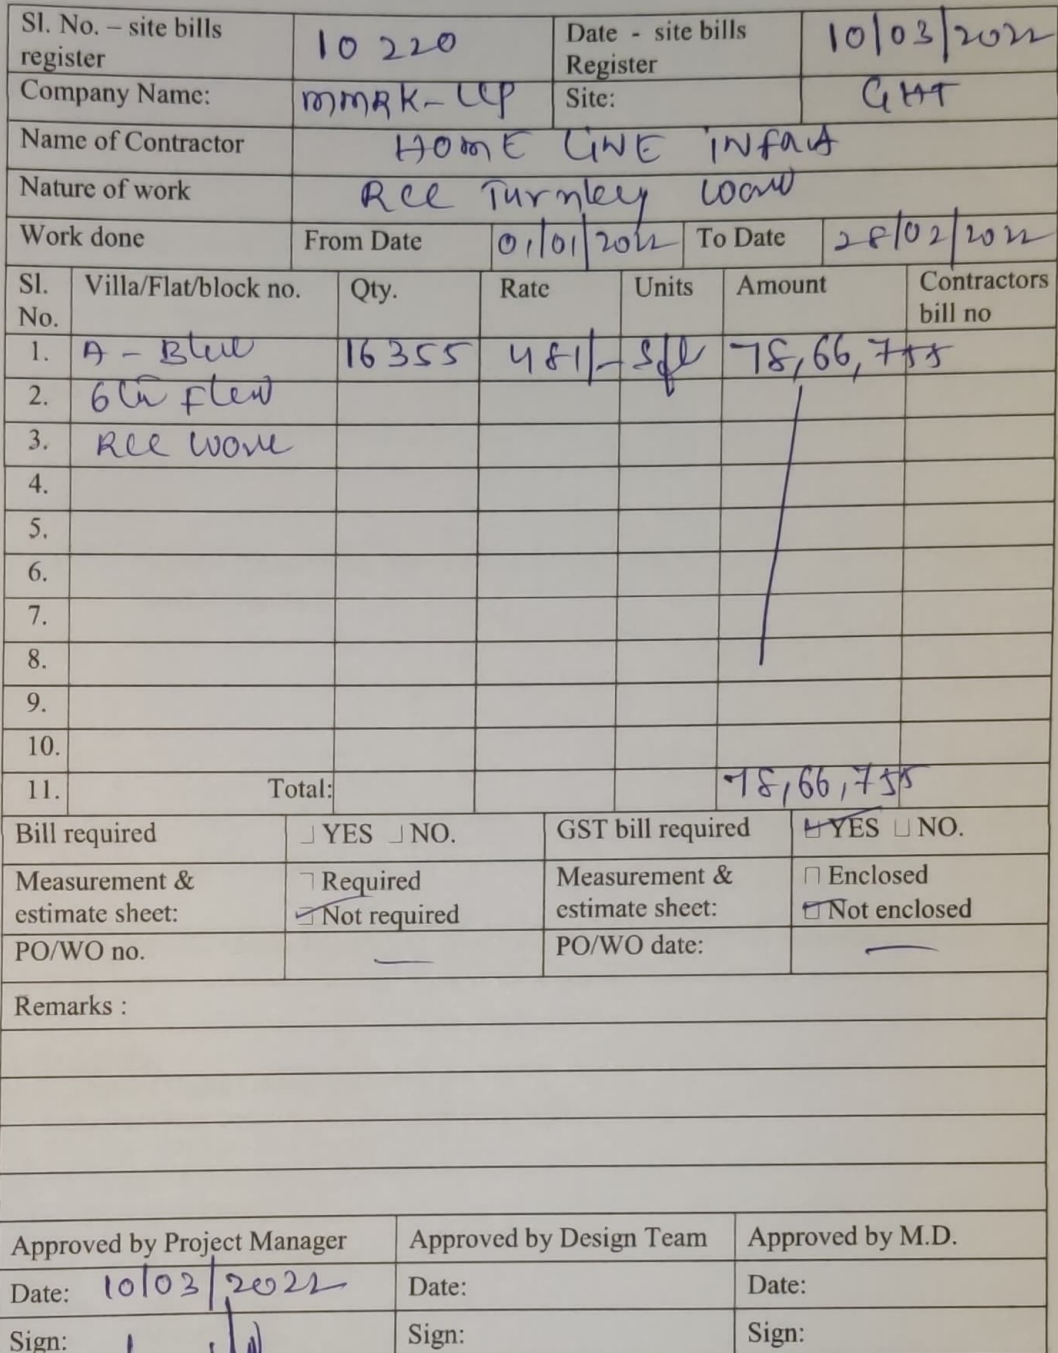 Sl. No. – site bills register 10 220 Date - site bills Register 10/03/2022
Company Name: MMRK-LLP Site: GHT
Name of Contractor HOME LINE INFRA
Nature of work RCC Turnkey work
Work done From Date 01/01/2022 To Date 28/02/2022
Sl. No. Villa/Flat/block no. Qty. Rate Units Amount Contractors bill no
1. A - Block 16355 481/- Sft 78,66,755
2. 6th Floor
3. RCC work
4.
5.
6.
7.
8.
9.
10.
11. Total: 78,66,755
Bill required YES NO. GST bill required YES NO.
Measurement & estimate sheet: Required Not required Measurement & estimate sheet: Enclosed Not enclosed
PO/WO no. — PO/WO date: —
Remarks :
Approved by Project Manager Approved by Design Team Approved by M.D.
Date: 10/03/2022 Date: Date:
Sign: Sign: Sign: